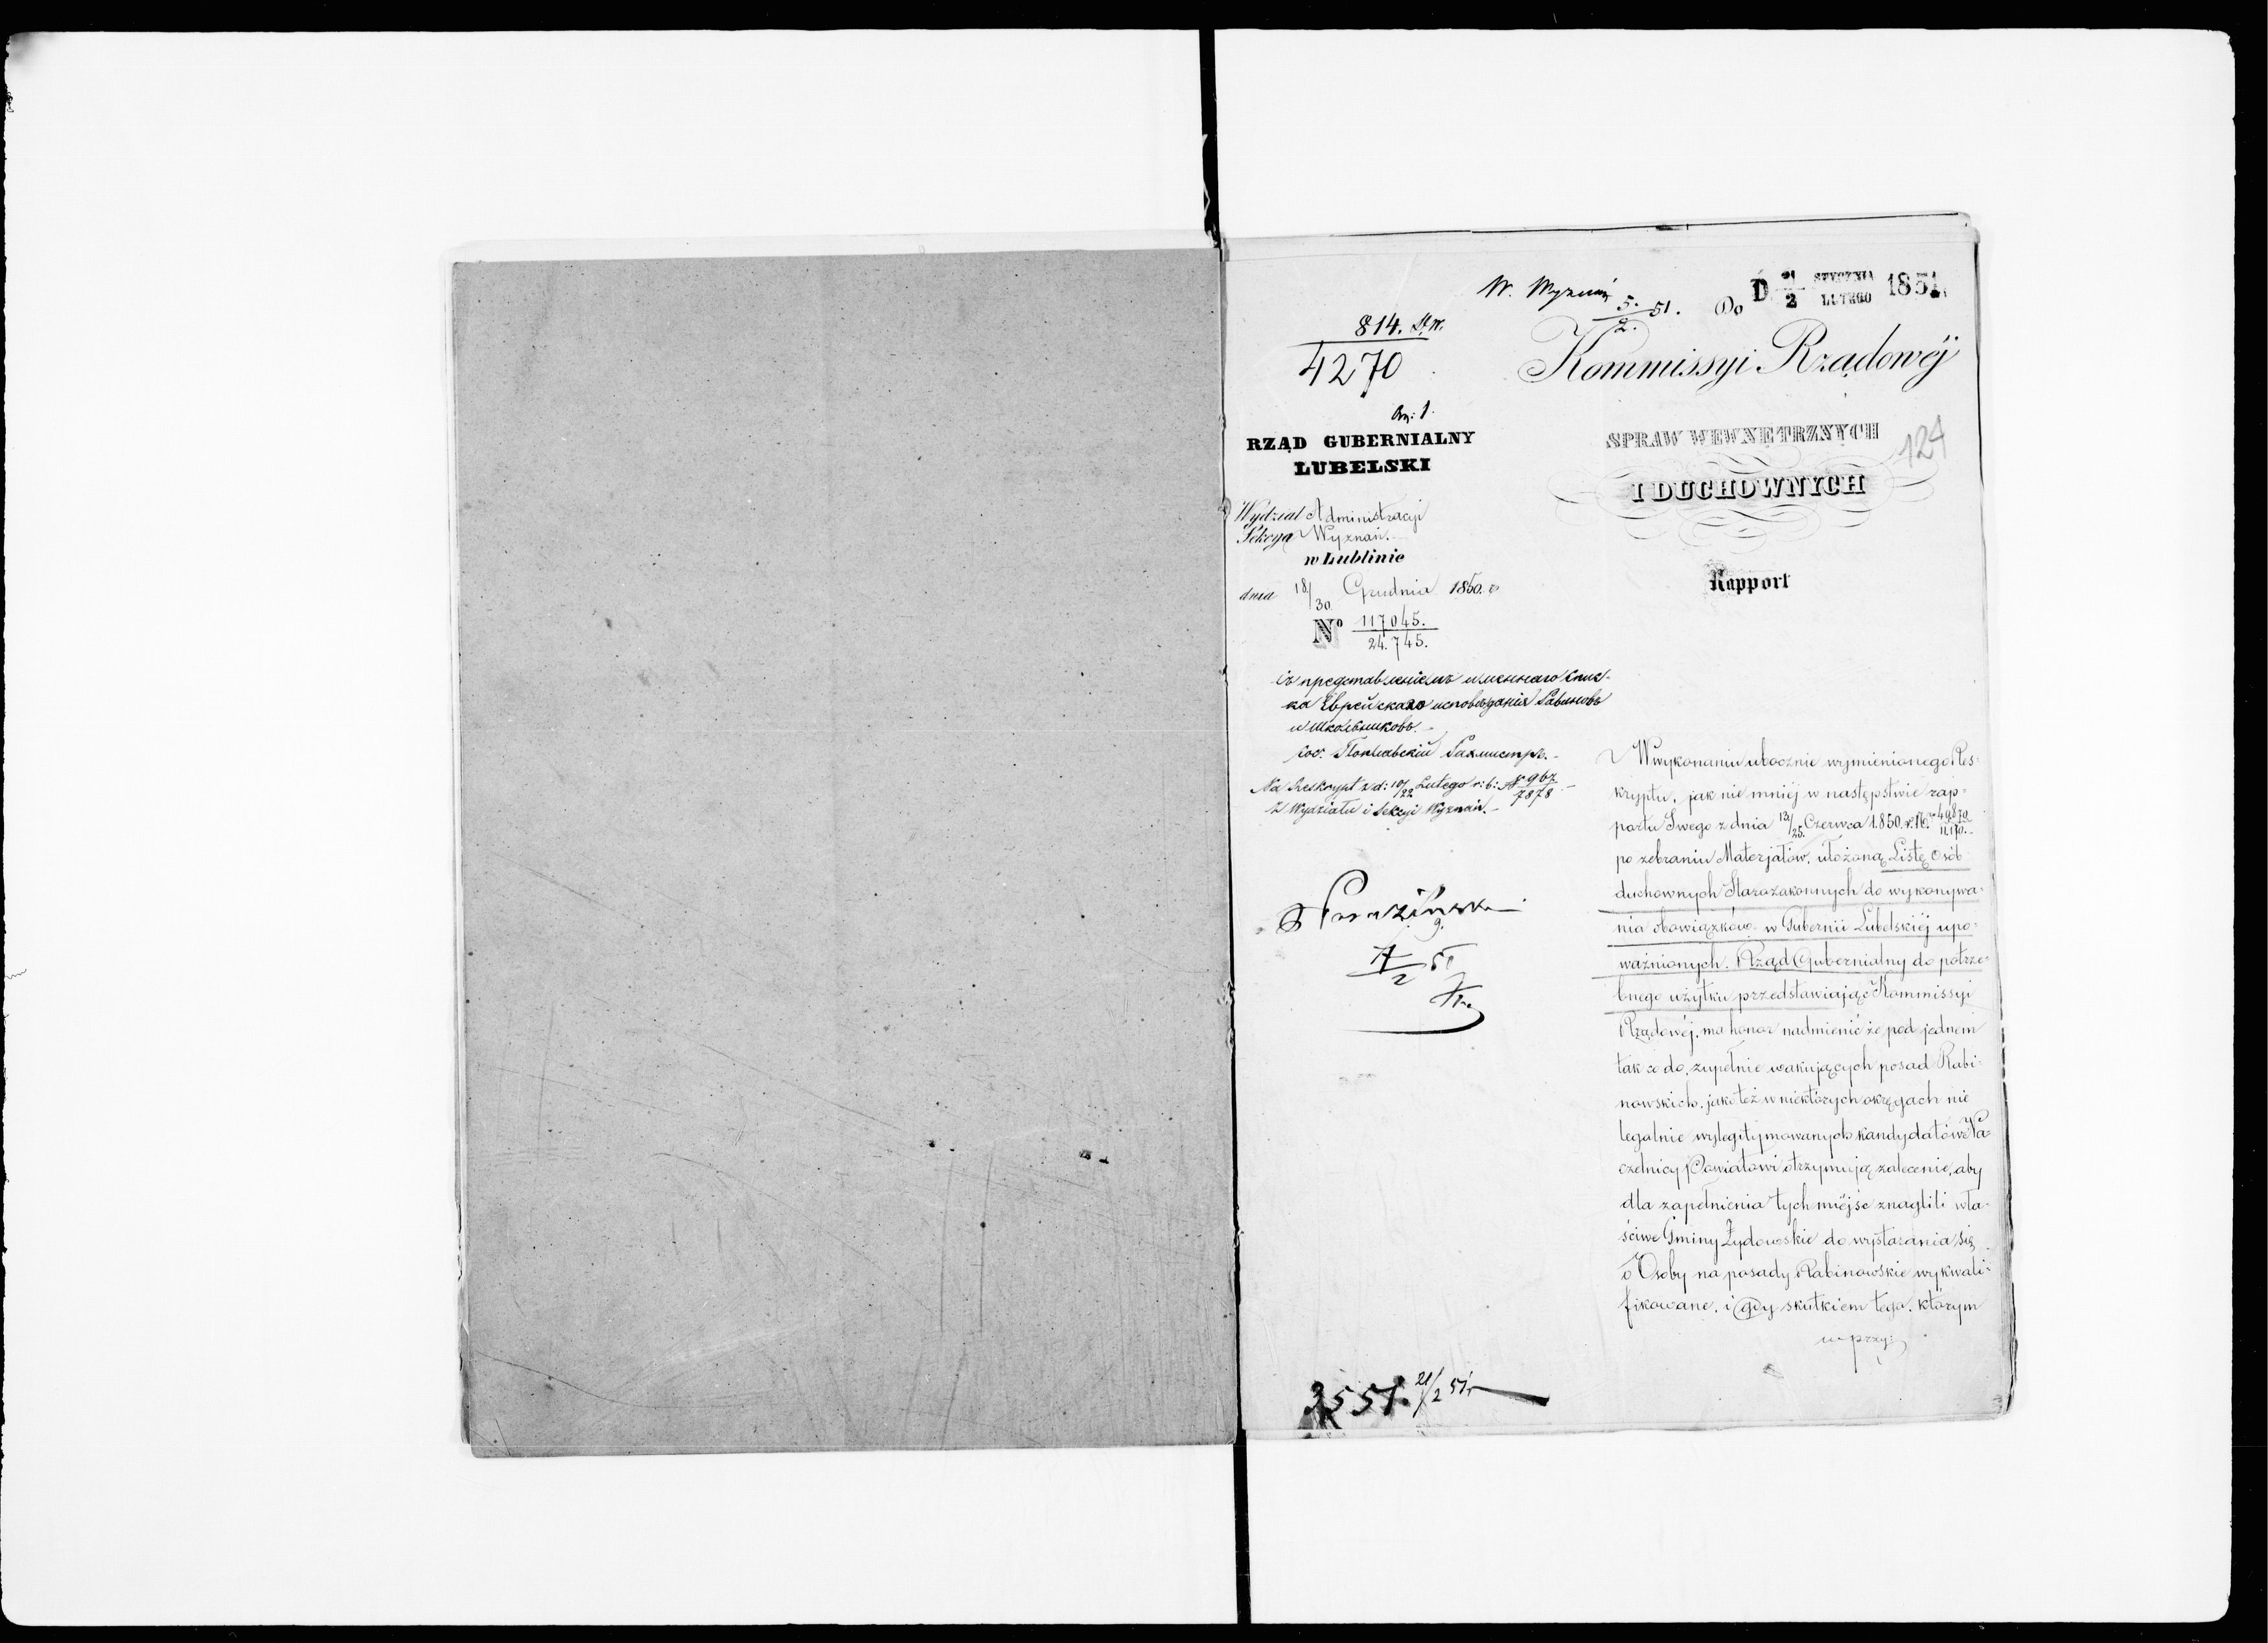 W. Wyznań 5./2. 51.
D 21/2 STYCZNIA LUTEGO 1851
814.
4270
Do
Kommissyi Rządowéj
SPRAW WEWNĘTRZNYCH
I DUCHOWNYCH
124
Rapport
RZĄD GUBERNIALNY
LUBELSKI
Wydział Administracyi
Sekcya Wyznań.
w Lublinie
dnia 18/30 Grudnia 1850. r
No 117045./24.745.
Съ представленіемъ именнаго Спис-
ка Еврейскаго исповѣданія Рабиновъ
и Школьниковъ.
Na Reskrypt z d: 10/22 Lutego r: b: № 967/7878
Z Wydziału i Sekcyi Wyznań.
W wykonaniu ubocznie wymienionego Res-
kryptu, jak nie mniéj w następstwie rap-
portu Swego z dnia 13/25. Czerwca 1850. r. No 49870/11.170.
po zebraniu Materjałów, ułożoną Listę Osób
duchownych Starozakonnych do wykonywa-
nia obowiązków w Gubernii Lubelskiéj upo-
ważnionych. Rząd Gubernialny do potrze-
bnego użytku przedstawiając Kommissyi
Rządowéj, ma honor nadmienić że pod jednem
tak co do, zupełnie wakujących posad Rabi-
nowskich, jako też w niektórych okręgach nie
legalnie wylegitymowanych kandydatów Na-
czelnicy Powiatowi otrzymują zalecenie, aby
dla zapełnienia tych miéjsc znaglili wła-
ściwe Gminy Żydowskie do wystarania się
o Osoby na posady Rabinowskie wykwali-
fikowane, i gdy skutkiem tego, którym
w przy:
7/2 51
3551. 21/2 51r